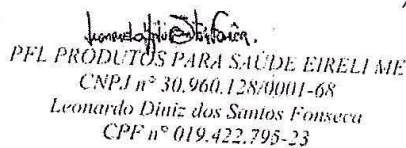 PFL PRODUTOS PARA SAÚDE EIRELI ME
CNPJ nº 30.960.128/0001-68
Leonardo Diniz dos Santos Fonseca
CPF nº 019.422.795-23